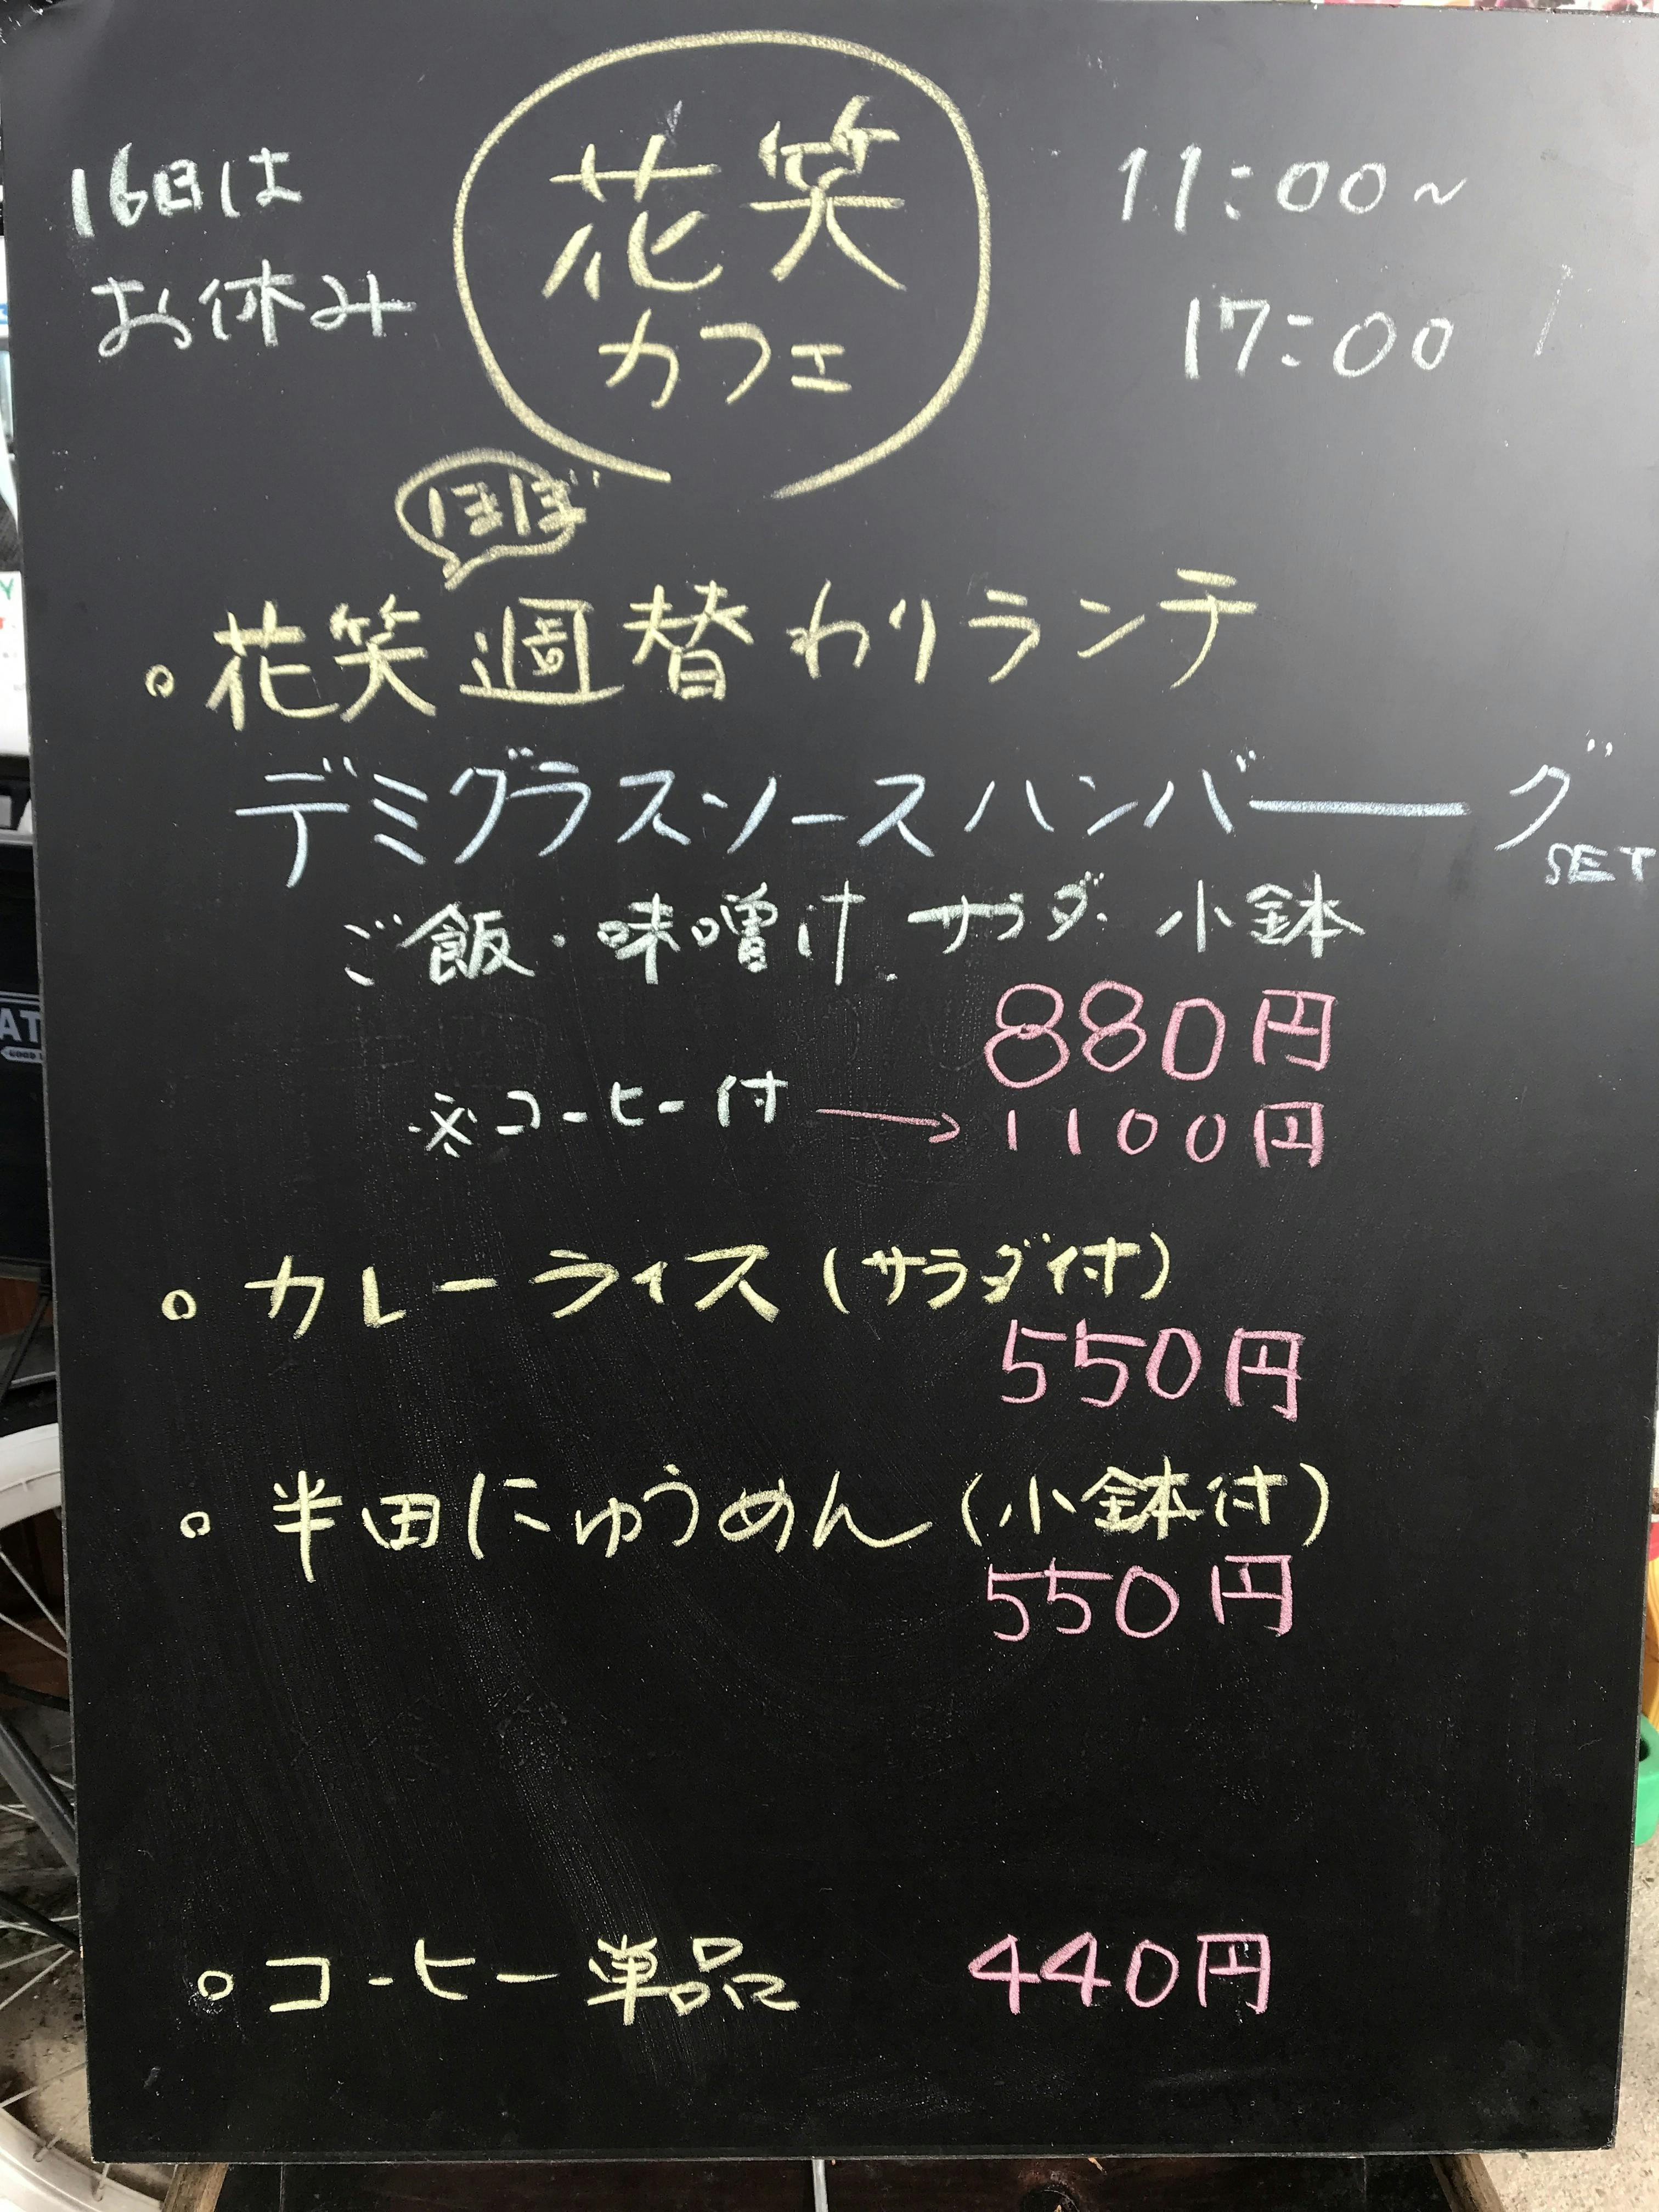 16日は
お休み
花笑
カフェ
11:00~
17:00
ほぼ
。花笑週替わりランチ
デミグラスソースハンバーグ
SET
ご飯・味噌汁、サラダ、小鉢
880円
※コーヒー付 → 1100円
。カレーライス(サラダ付)
550円
。半田にゅうめん(小鉢付)
550円
。コーヒー単品 440円